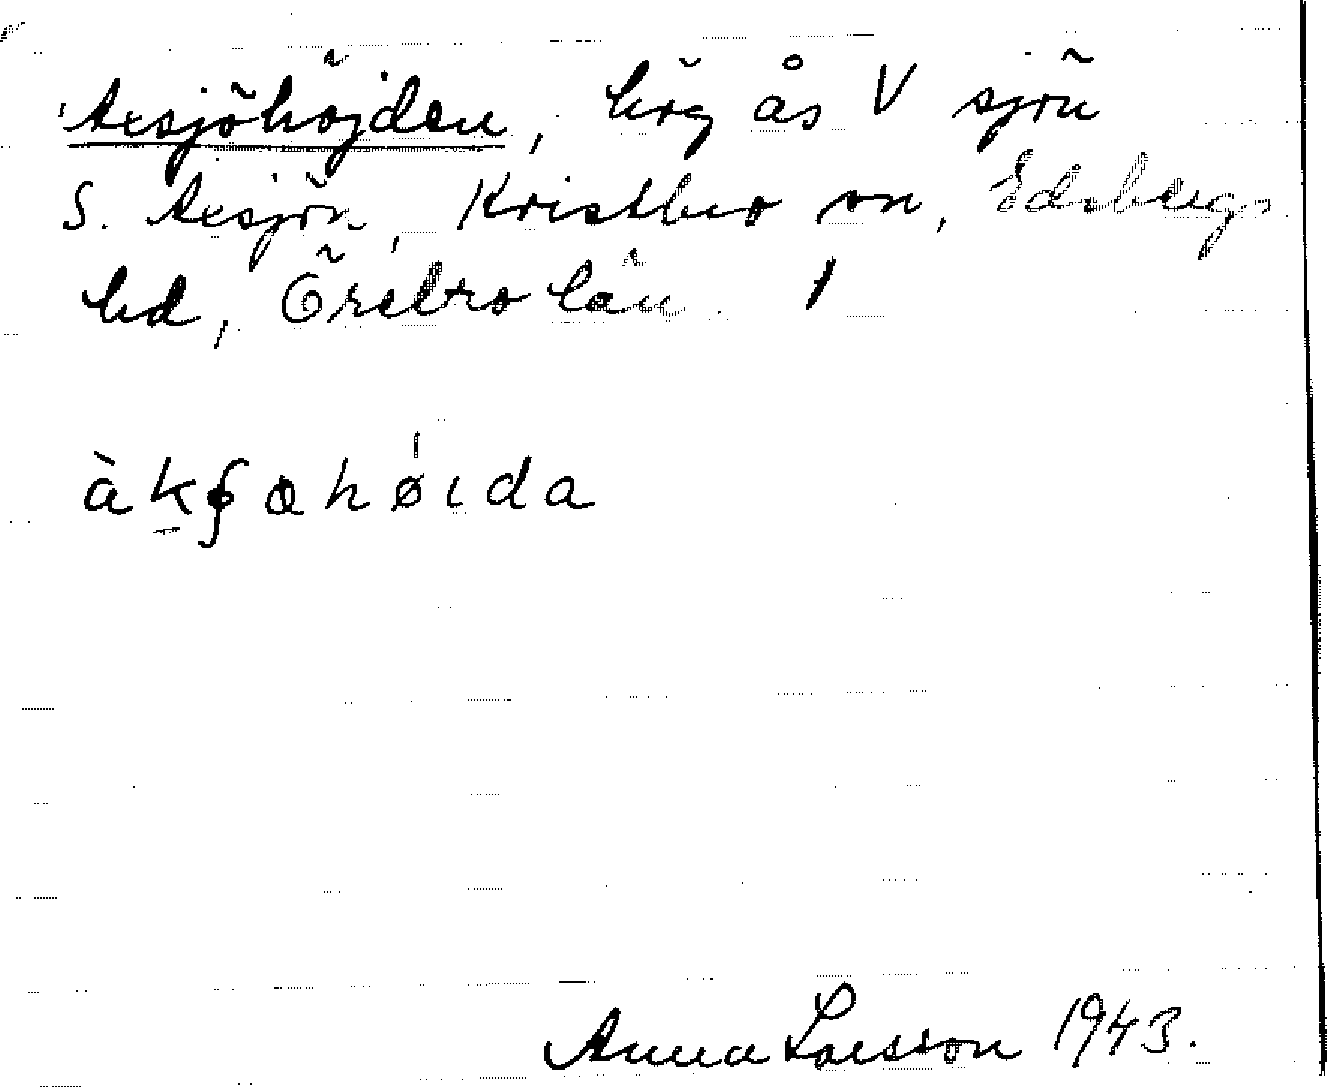 Axsjöhöjden, hög ås V sjön
S. Axsjön, Kristbero sn, Edsbergs
hd, Örebro län.
àkʃøhøιda
Anna Larsson 1943.